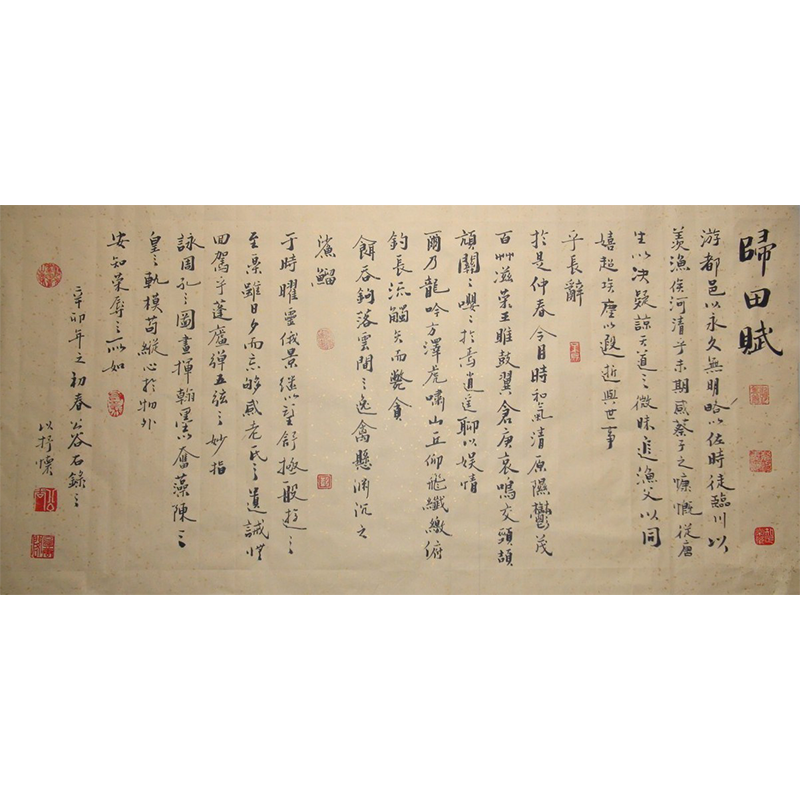 歸田賦
游都邑以永久無明略以佐時徒臨川以
羨漁俟河清乎未期感蔡子之慷慨從唐
生以決疑諒天道之微昧追漁父以同
嬉超埃塵以遐逝與世事
乎長辭
於是仲春令月時和氣清原隰鬱茂
百艸滋榮王雎鼓翼倉庚哀鳴交頸頡
頏關〻嚶〻於焉逍遙聊以娛情
爾乃龍吟方澤虎嘯山丘仰飛纖繳俯
釣長流觸矢而斃貪
餌吞鉤落雲間之逸禽懸淵沉之
鯊鰡
于時曜靈俄景繼以望舒極般遊之
至樂雖日夕而忘劬感老氏之遺誡將
回駕乎蓬廬彈五弦之妙指
詠周孔之圖書揮翰墨以奮藻陳三
皇之軌模苟縱心於物外
安知榮辱之所如
辛卯年之初春公谷石錄之
以抒懷